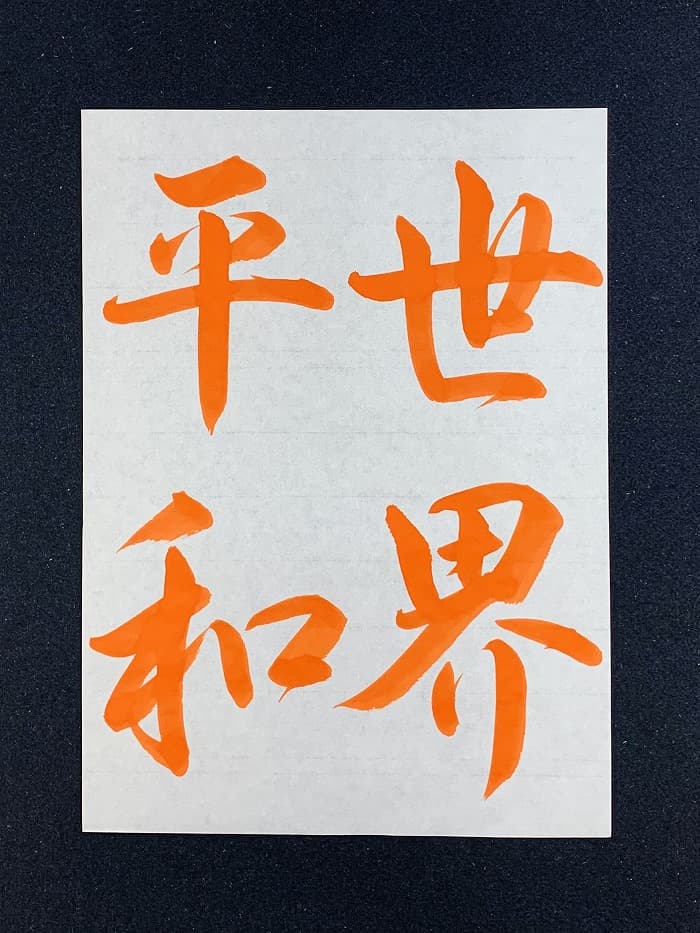 世界
平和